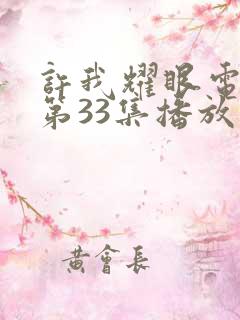 許我耀眼電
第33集播放
黄會長